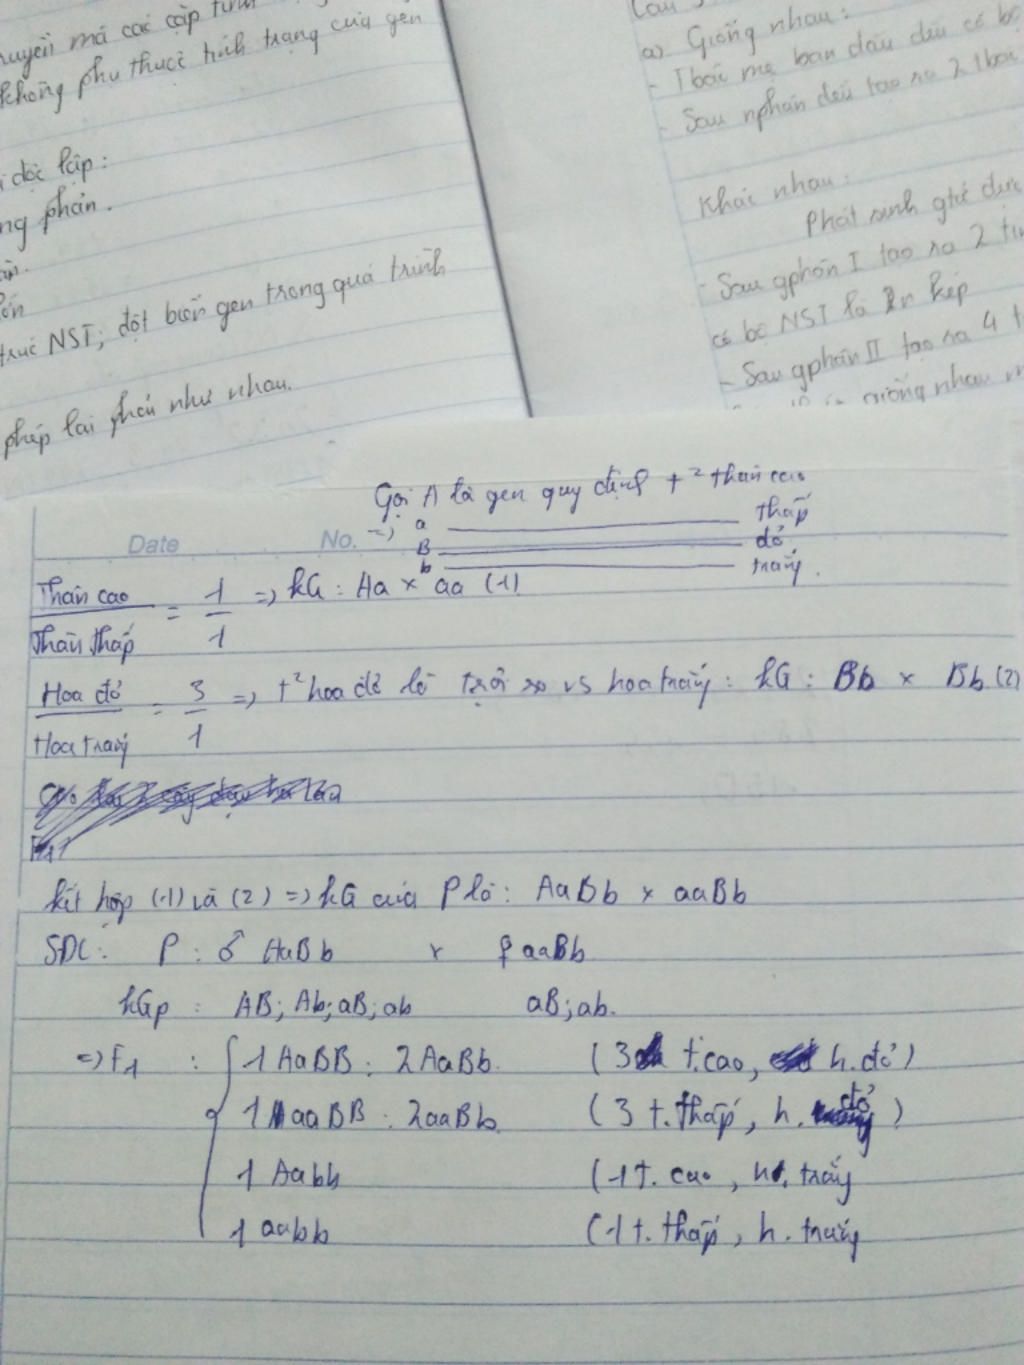 truyền mà các cặp tính
không phụ thuộc tính trạng của gen
độc lập:
phân.
trúc NST; đột biến gen trong quá trình
phép lai phải như nhau.
a) Giống nhau:
- 1 bài mẹ ban đầu đều có bộ
- Sau nphân đều tạo ra 2 tbài
Khác nhau:
Phát sinh gtử đực
- Sau gphân I tạo ra 2 
có bộ NST là n kép
- Sau gphân II tạo ra 4 t
giống nhau
Gọi A là gen quy định t² thân cao
Date No. => a ——— thấp
B ——— đỏ
b ——— trắng.
Thân cao / Thân thấp = 1/1 => kG: Aa x aa (1)
Hoa đỏ / Hoa trắng = 3/1 => t² hoa đỏ là trội so vs hoa trắng: kG: Bb x Bb (2)
kết hợp (1) và (2) => kG của P là: AaBb x aaBb
SĐL: P: ♂ AaBb x ♀ aaBb
kGp: AB; Ab; aB; ab aB; ab.
=> F1: { 1 AaBB : 2AaBb. (3 t.cao, h.đỏ)
1 aaBB : 2aaBb. (3 t.thấp, h. đỏ)
1 Aabb (1 t. cao, h. trắng
1 aabb (1 t. thấp, h. trắng